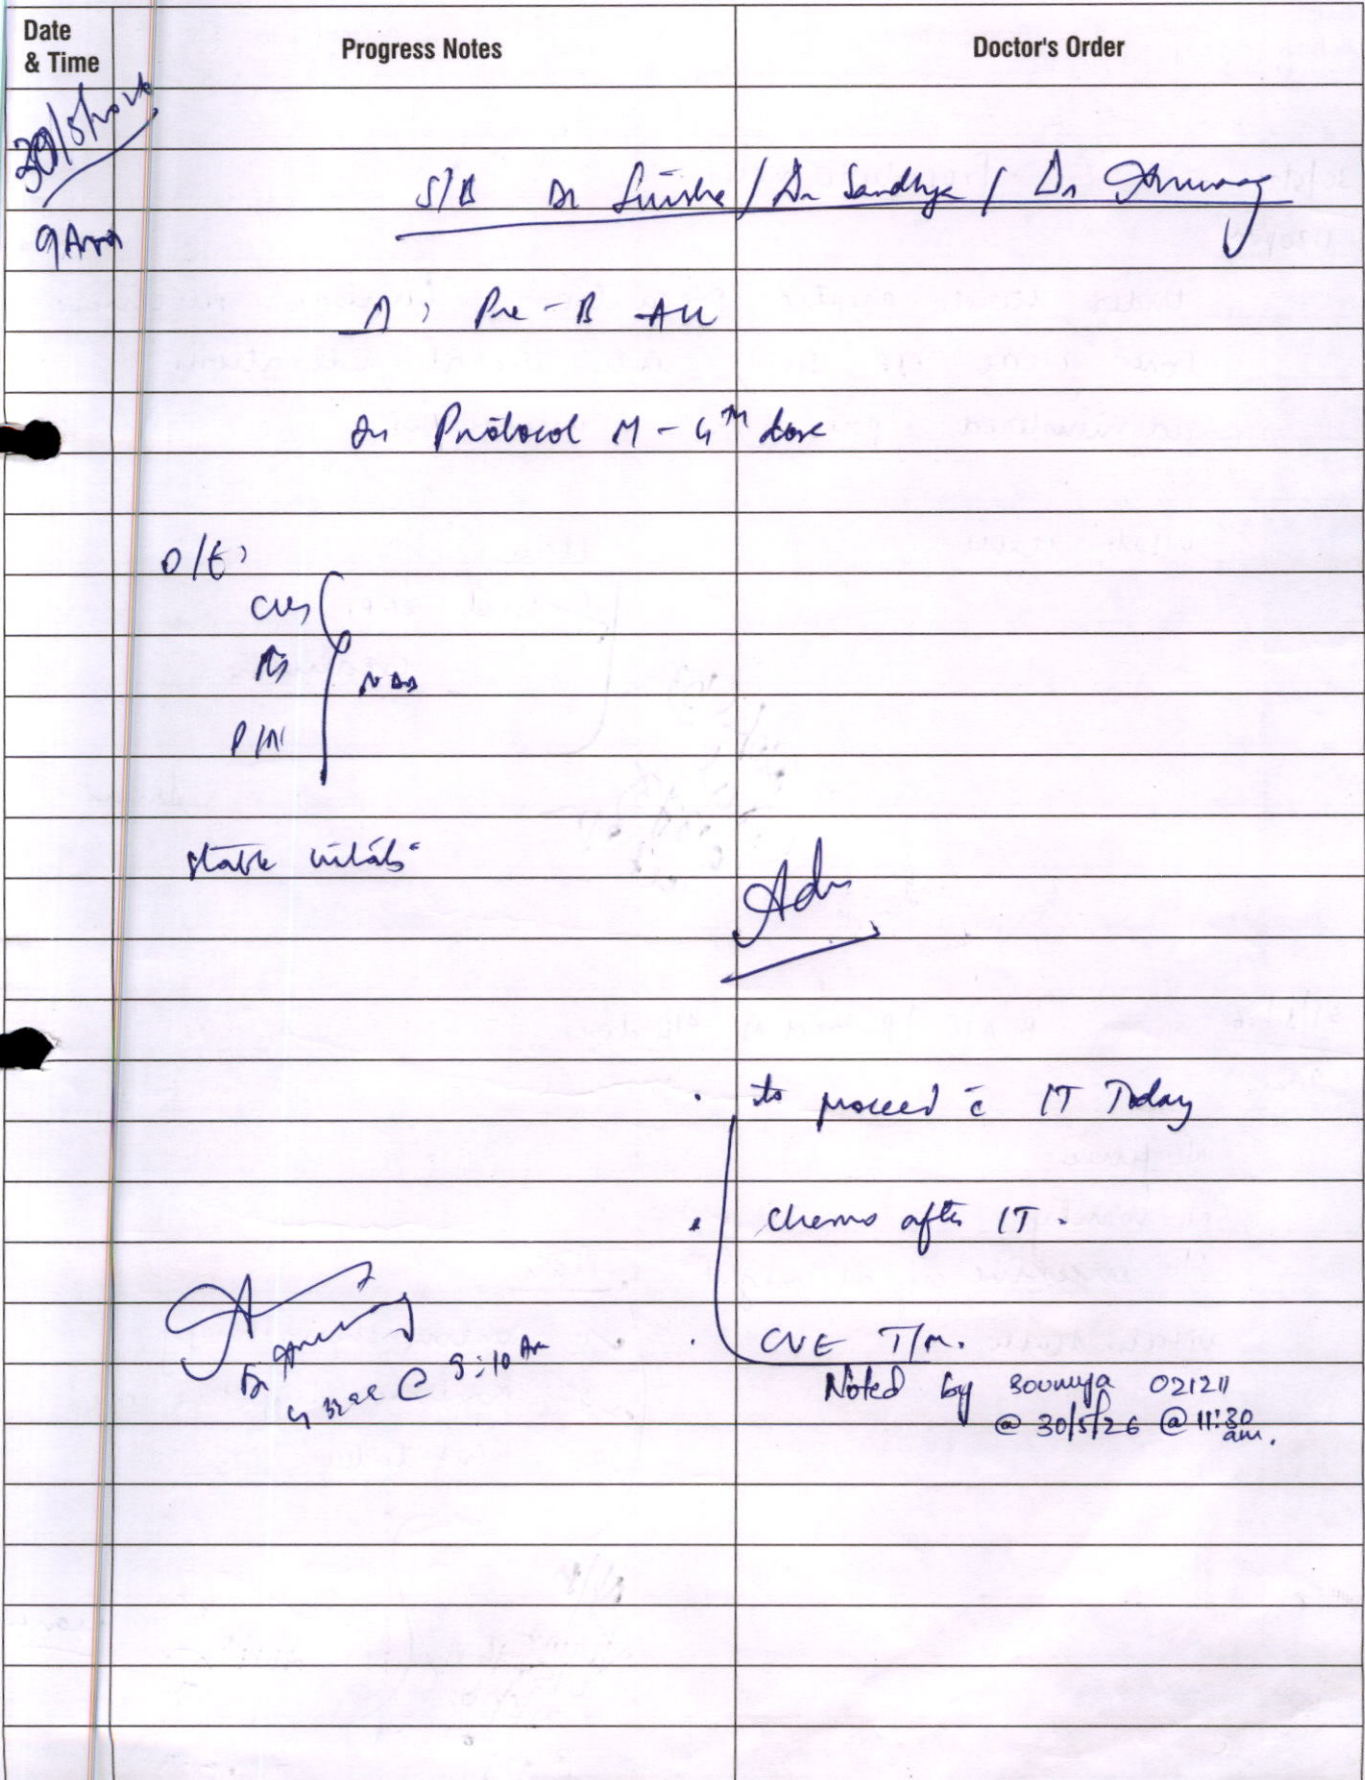 Date & Time
Progress Notes
Doctor's Order
30/5/2026
9 Am
S/B Dr / Dr Sandhya / Dr Anurag
Δ: Pre-B ALL
On Protocol M - 4th dose
O/E:
CVS
RS
P/A
NAD
stable vitals
Adv
. to proceed c̄ IT Today
. chemo after IT.
. CUE T/m.
Dr Anurag
@ 9:10 Am
Noted by soumya 021211
@ 30/5/26 @ 11:30 am.